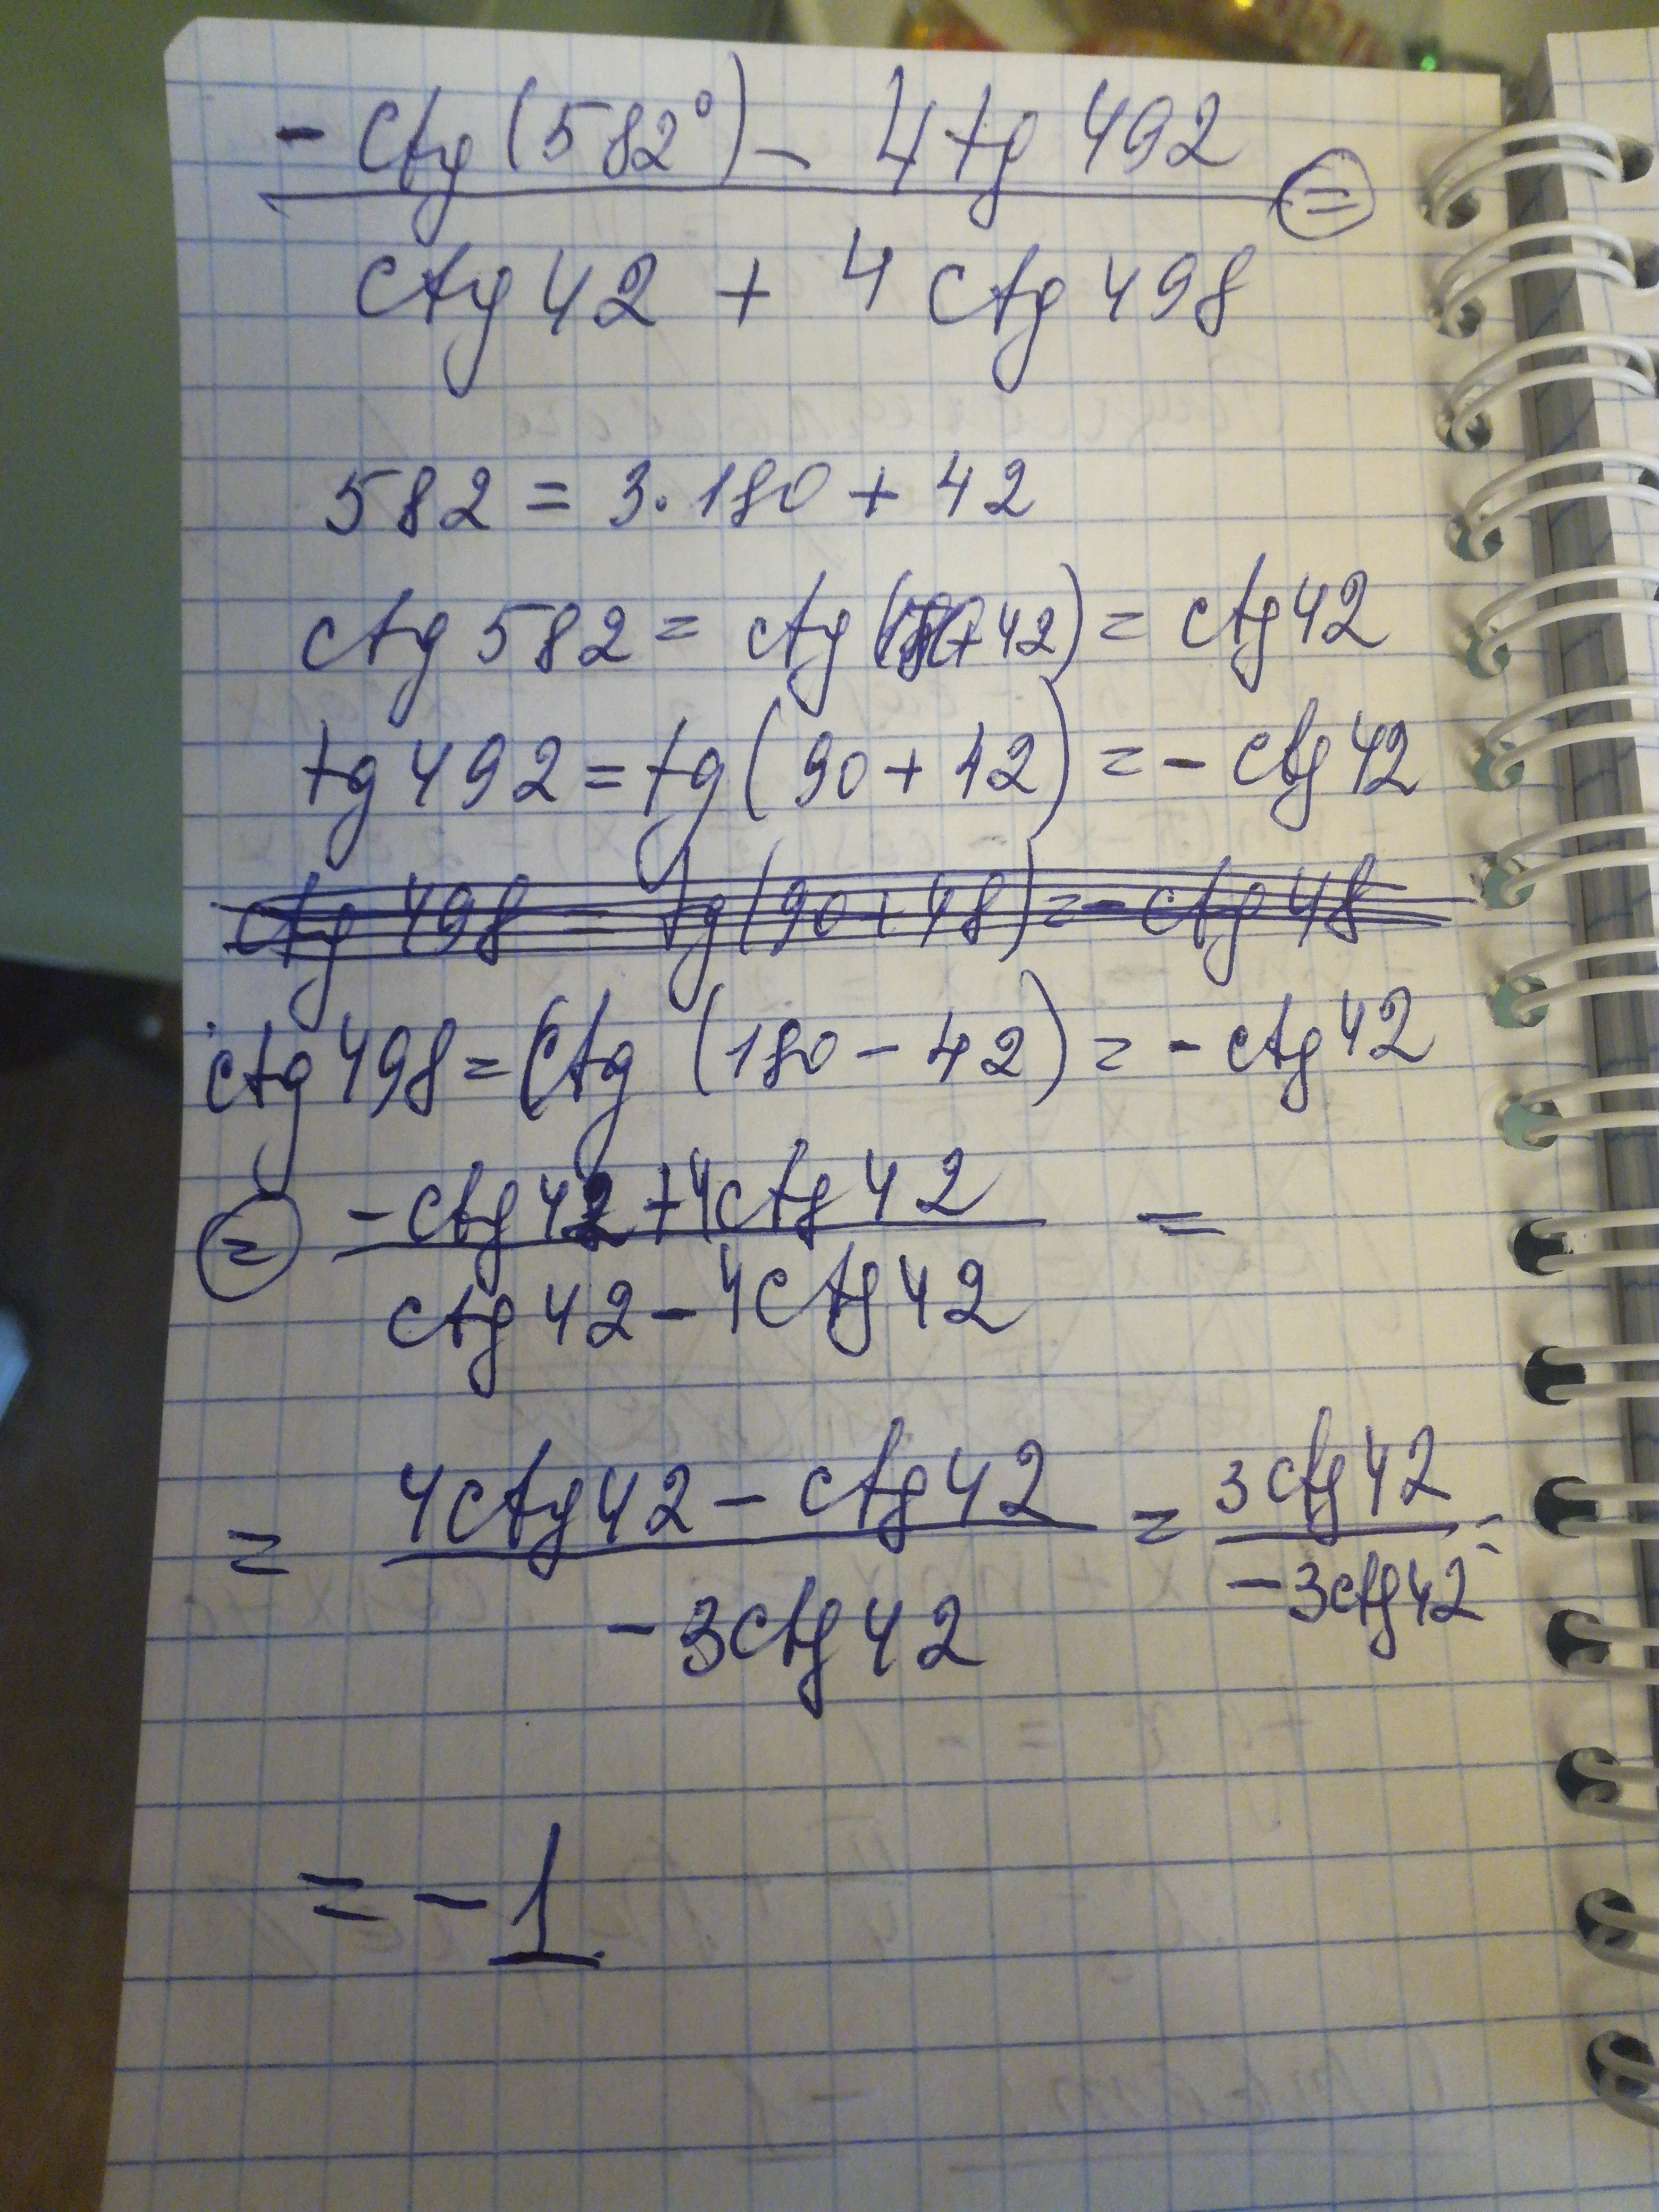 - ctg (582°) - 4 tg 492 =
ctg 42 + 4 ctg 498
582 = 3·180 + 42
ctg 582 = ctg (180+42) = ctg 42
tg 492 = tg (90 + 42) = - ctg 42
ctg 498 = tg (90+48) = - ctg 48
ctg 498 = ctg (180 - 42) = - ctg 42
= -ctg 42 + 4ctg 42 =
ctg 42 - 4ctg 42
= 4ctg 42 - ctg 42 = 3ctg 42 =
-3ctg 42 -3ctg 42
= - 1